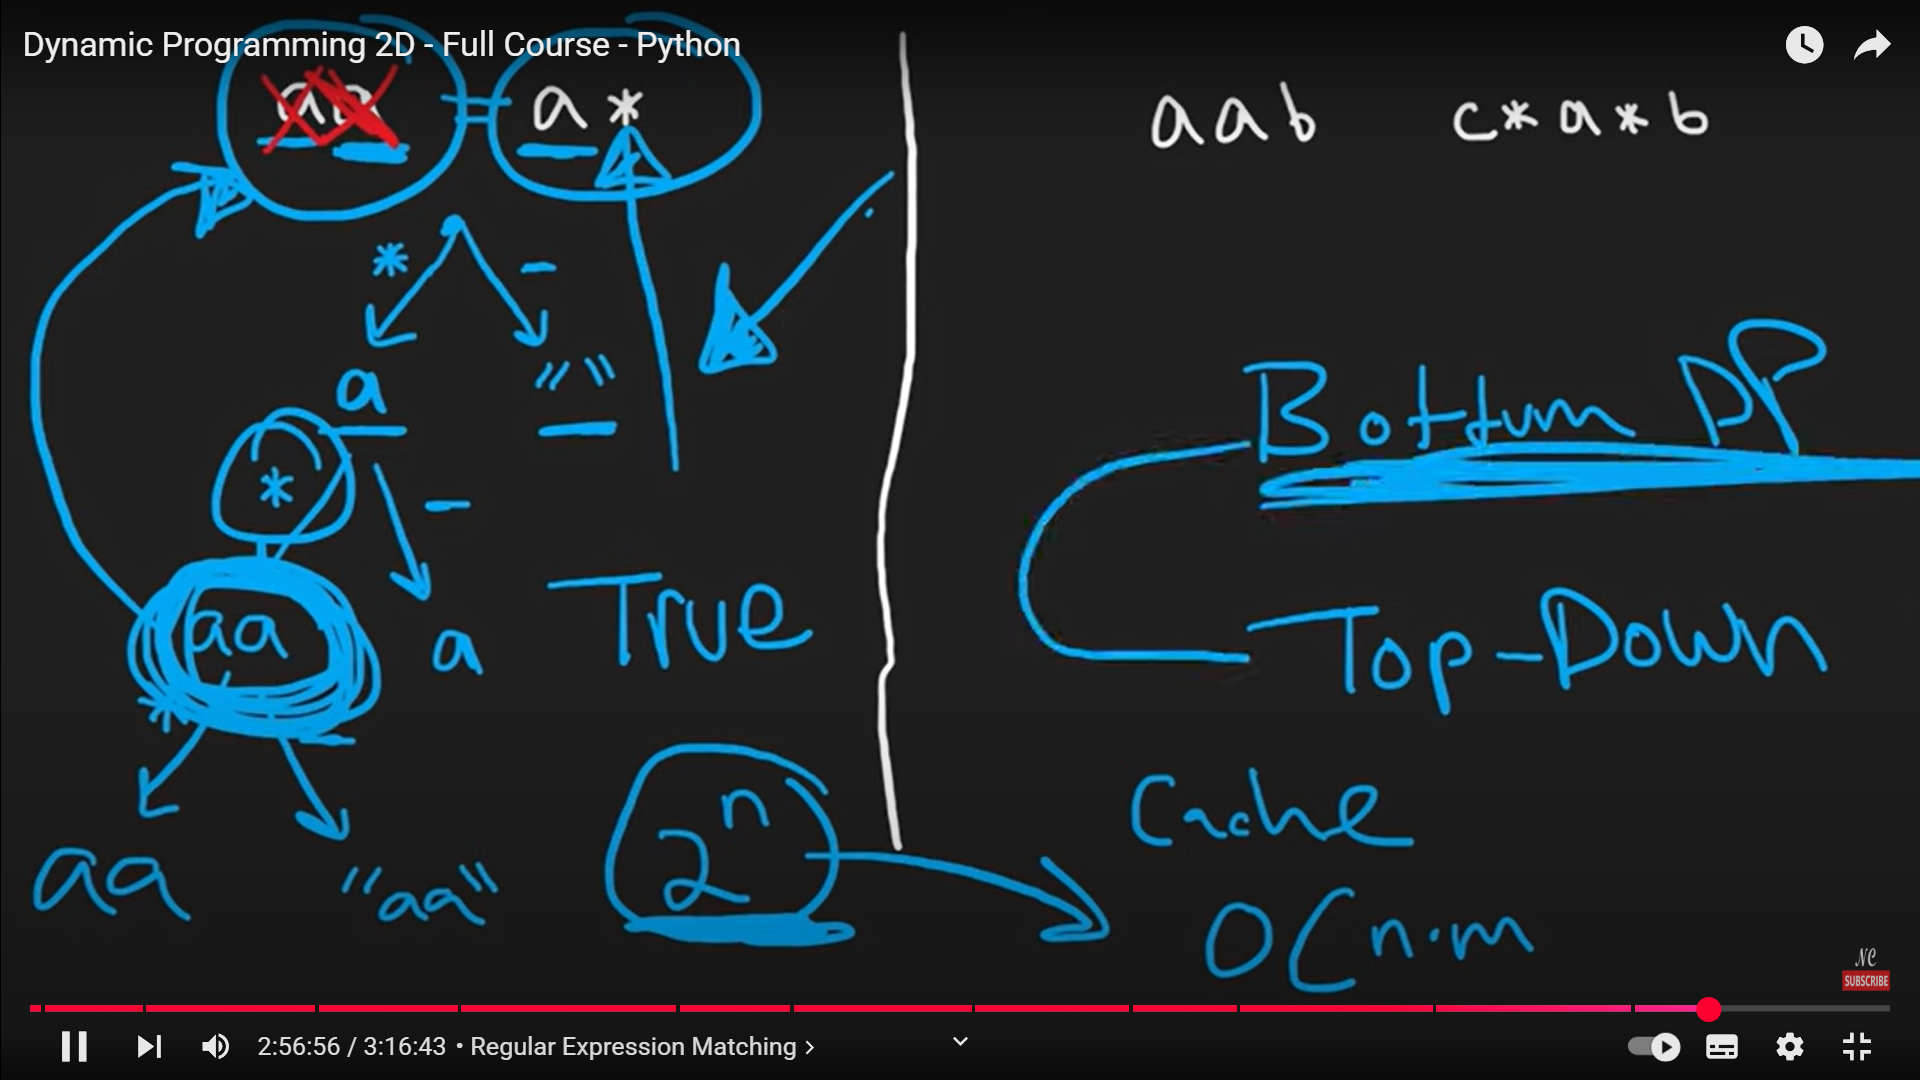 Dynamic Programming 2D - Full Course - Python
aa = a *
aab c*a*b
* -
a "" 
* -
aa a
True
* -
aa "aa"
2^n
Bottum DP
Top-Down
Cache
O(n·m
NC
SUBSCRIBE
2:56:56 / 3:16:43 • Regular Expression Matching